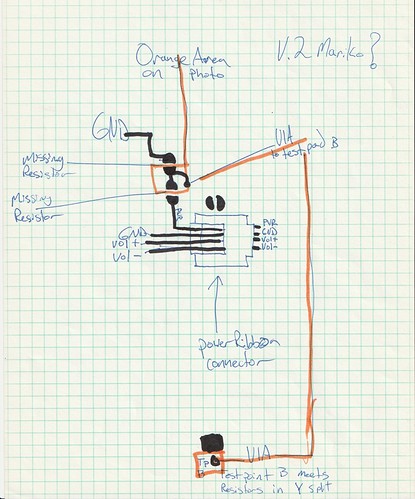 Orange Area
on photo
V.2 Mariko?
GND
Missing
Resistor
Missing
Resistor
VIA
to test pad B
GND
Vol+
Vol-
PWR
GND
Vol+
Vol-
power Ribbon
connector
VIA
TP
B
Test point B meets
Resistors in Y split